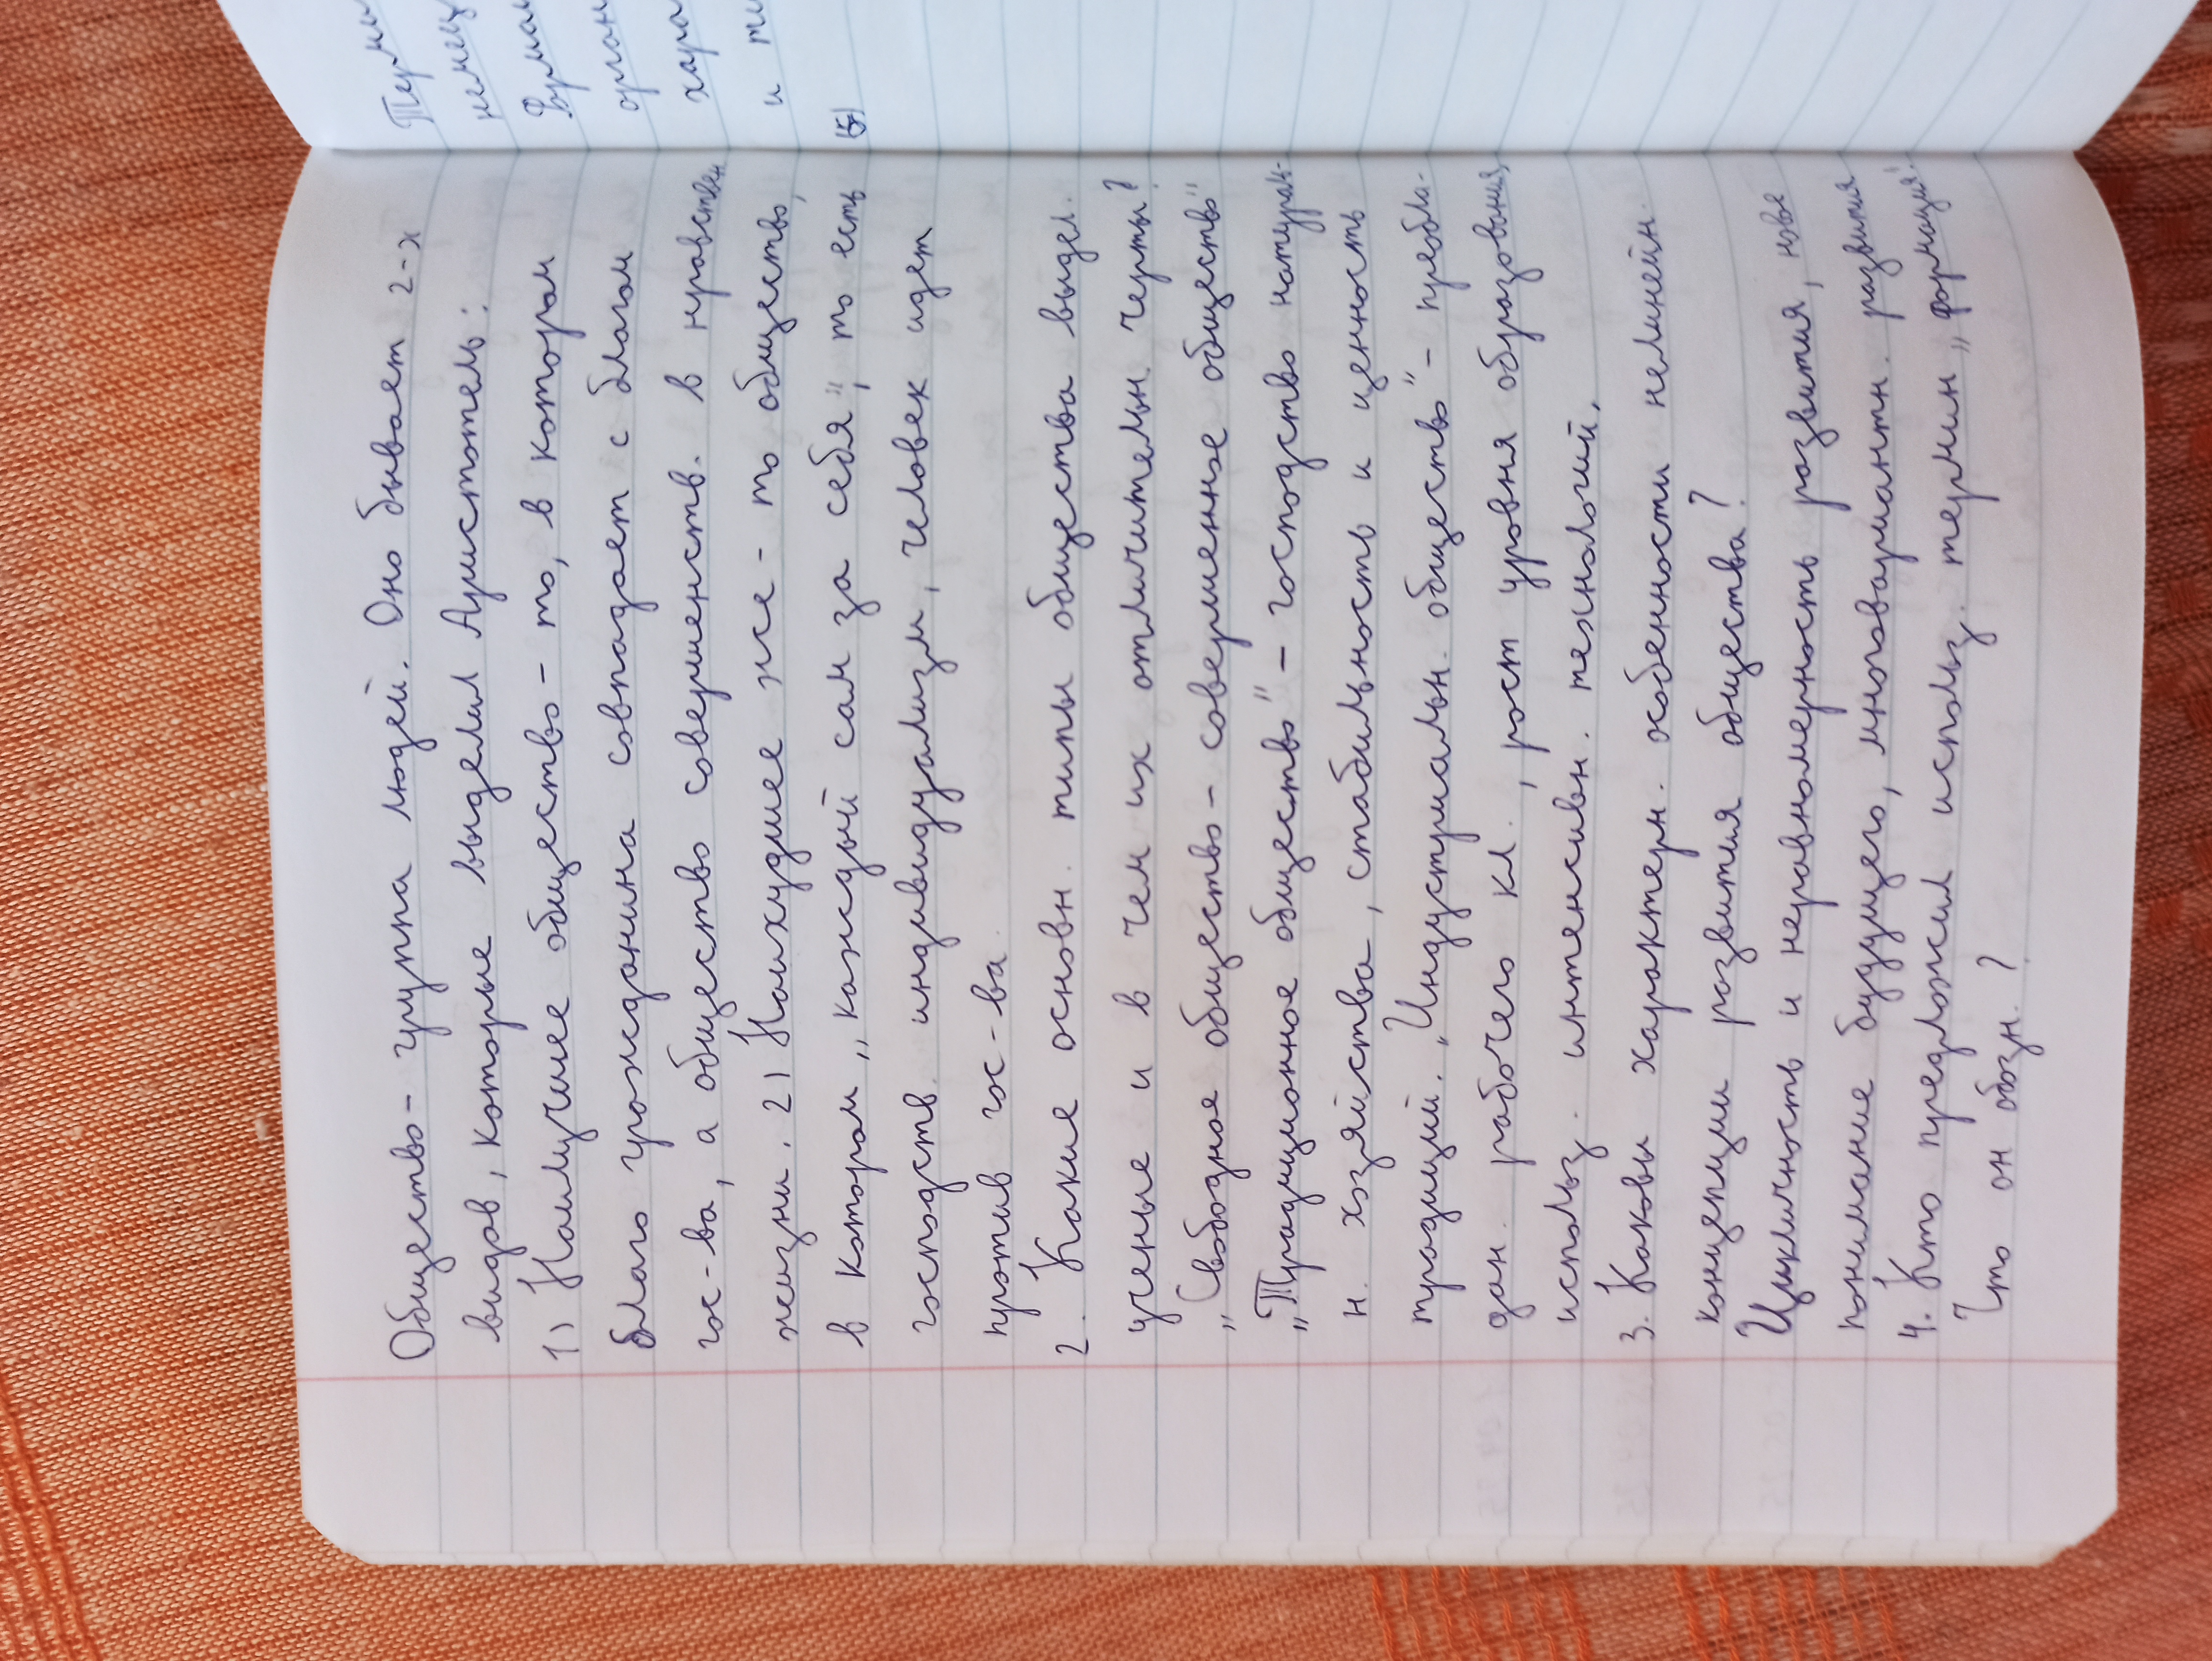 Общество - группа людей. Оно бывает 2-х
видов, которые выделил Аристотель:
1) Наилучшее общество - то, в котором
благо гражданина совпадает с благом
гос-ва, а общество совершенств. в нравствен
жизни. 2) Наихудшее же - то общество,
в котором „каждый сам за себя", то есть
господств. индивидуализм, человек идет
против гос-ва.
2. Какие основн. типы общества выдел.
ученые и в чем их отличительн. черты?
„Свободное общество - совершенное общество"
„Традиционное общество" - господство натурал-
н. хозяйства, стабильность и ценность
традиций. „Индустриальн. общество" - преобла-
дан. рабочего кл., рост уровня образования,
использ. интенсивн. технологий.
3. Каковы характерн. особенности нелинейн.
концепции развития общества?
Цикличность и неравномерность развития, новое
понимание будущего, многовариантн. развития
4. Кто предложил использ. термин „формация".
Что он обозн.?
Терми
немец
Форма
орган
хара
и ти